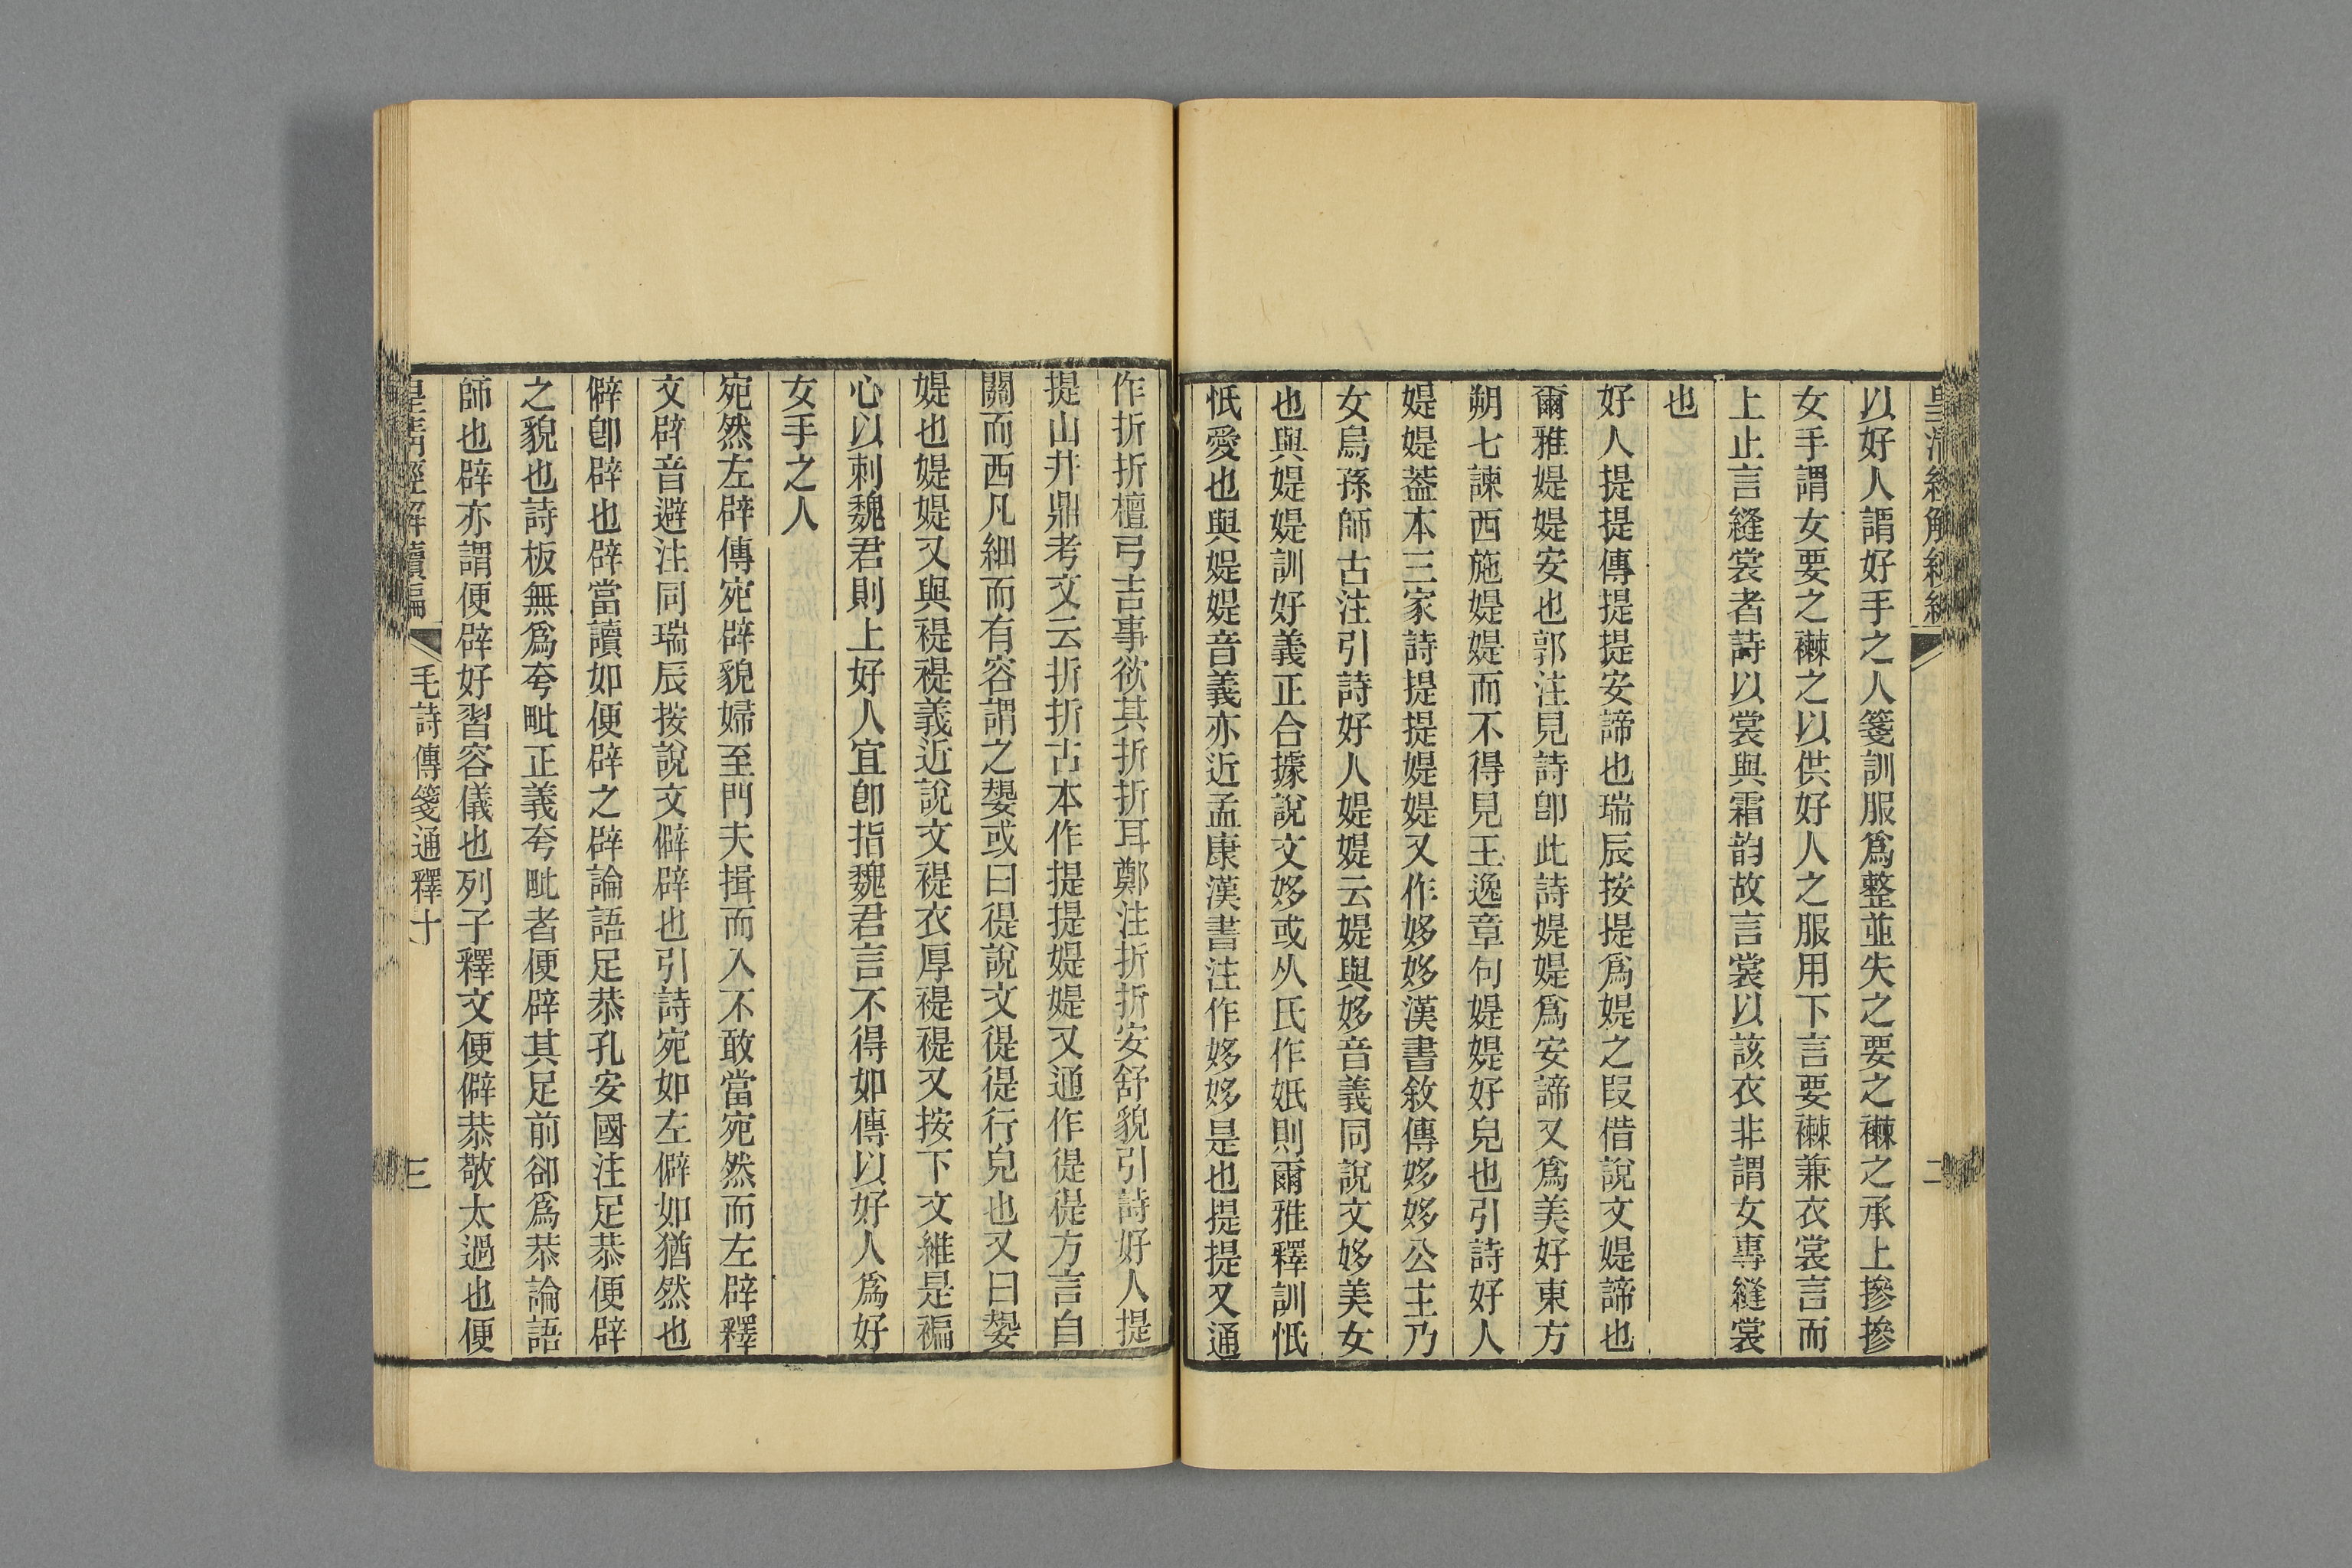 以好人謂好手之人箋訓服爲整並失之要之襋之承上摻摻
女手謂女要之襋之以供好人之服用下言要襋兼衣裳言而
上止言縫裳者詩以裳與霜韵故言裳以該衣非謂女專縫裳
也
好人提提傳提提安諦也瑞辰按提爲媞之叚借說文媞諦也
爾雅媞媞安也郭注見詩卽此詩媞媞爲安諦又爲美好東方
朔七諫西施媞媞而不得見王逸章句媞媞好皃也引詩好人
媞媞葢本三家詩提提媞媞又作姼姼漢書敘傳姼姼公主乃
女烏孫師古注引詩好人媞媞云媞與姼音義同說文姼美女
也與媞媞訓好義正合據說文姼或从氏作妷則爾雅釋訓怟
怟愛也與媞媞音義亦近孟康漢書注作姼姼是也提提又通
作折折檀弓吉事欲其折折耳鄭注折折安舒貌引詩好人提
提山井鼎考文云折折古本作提提媞媞又通作徥徥方言自
關而西凡細而有容謂之嫢或曰徥說文徥徥行皃也又曰嫢
媞也媞媞又與褆褆義近說文褆衣厚褆褆又按下文維是褊
心以刺魏君則上好人宜卽指魏君言不得如傳以好人爲好
女手之人
宛然左辟傳宛辟貌婦至門夫揖而入不敢當宛然而左辟釋
文辟音避注同瑞辰按說文僻辟也引詩宛如左僻如猶然也
僻卽辟也辟當讀如便辟之辟論語足恭孔安國注足恭便辟
之貌也詩板無爲夸毗正義夸毗者便辟其足前卻爲恭論語
師也辟亦謂便辟好習容儀也列子釋文便僻恭敬太過也便
皇清經解續編
毛詩傳箋通釋十
三